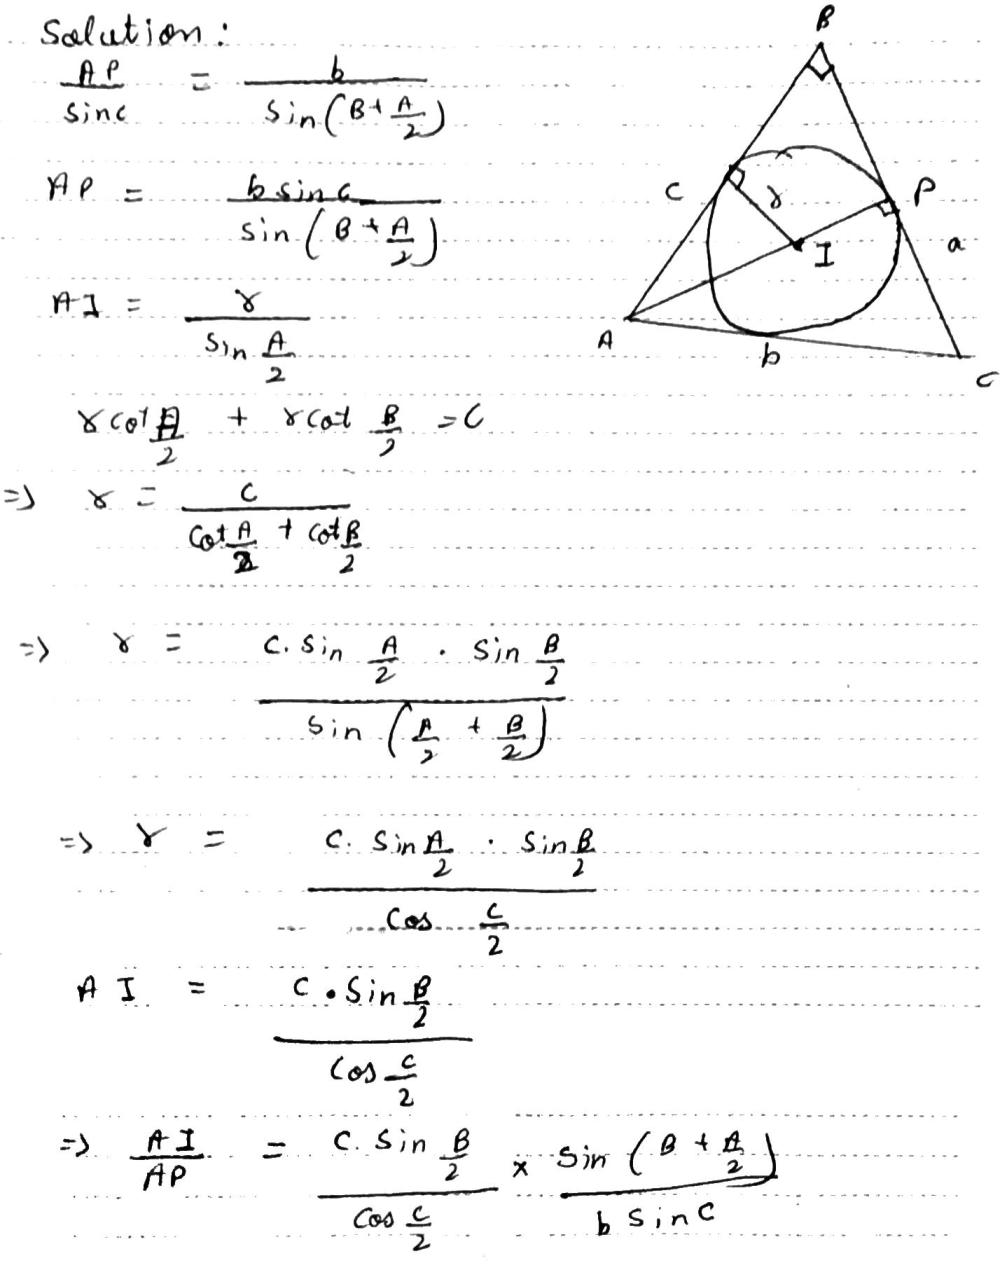 Solution:
AP/sinc = b/sin(B+A/2)
AP = b sin c/sin(B+A/2)
AI = r/sin A/2
r cot A/2 + r cot B/2 = C
=> r = C/(cot A/2 + cot B/2)
=> r = C. sin A/2 . sin B/2 / sin(A/2 + B/2)
=> r = C. Sin A/2 . Sin B/2 / Cos C/2
AI = C . Sin B/2 / Cos C/2
=> AI/AP = C. Sin B/2 / Cos C/2 x Sin(B + A/2) / b Sin C
B
C
r
P
I
a
A
b
C